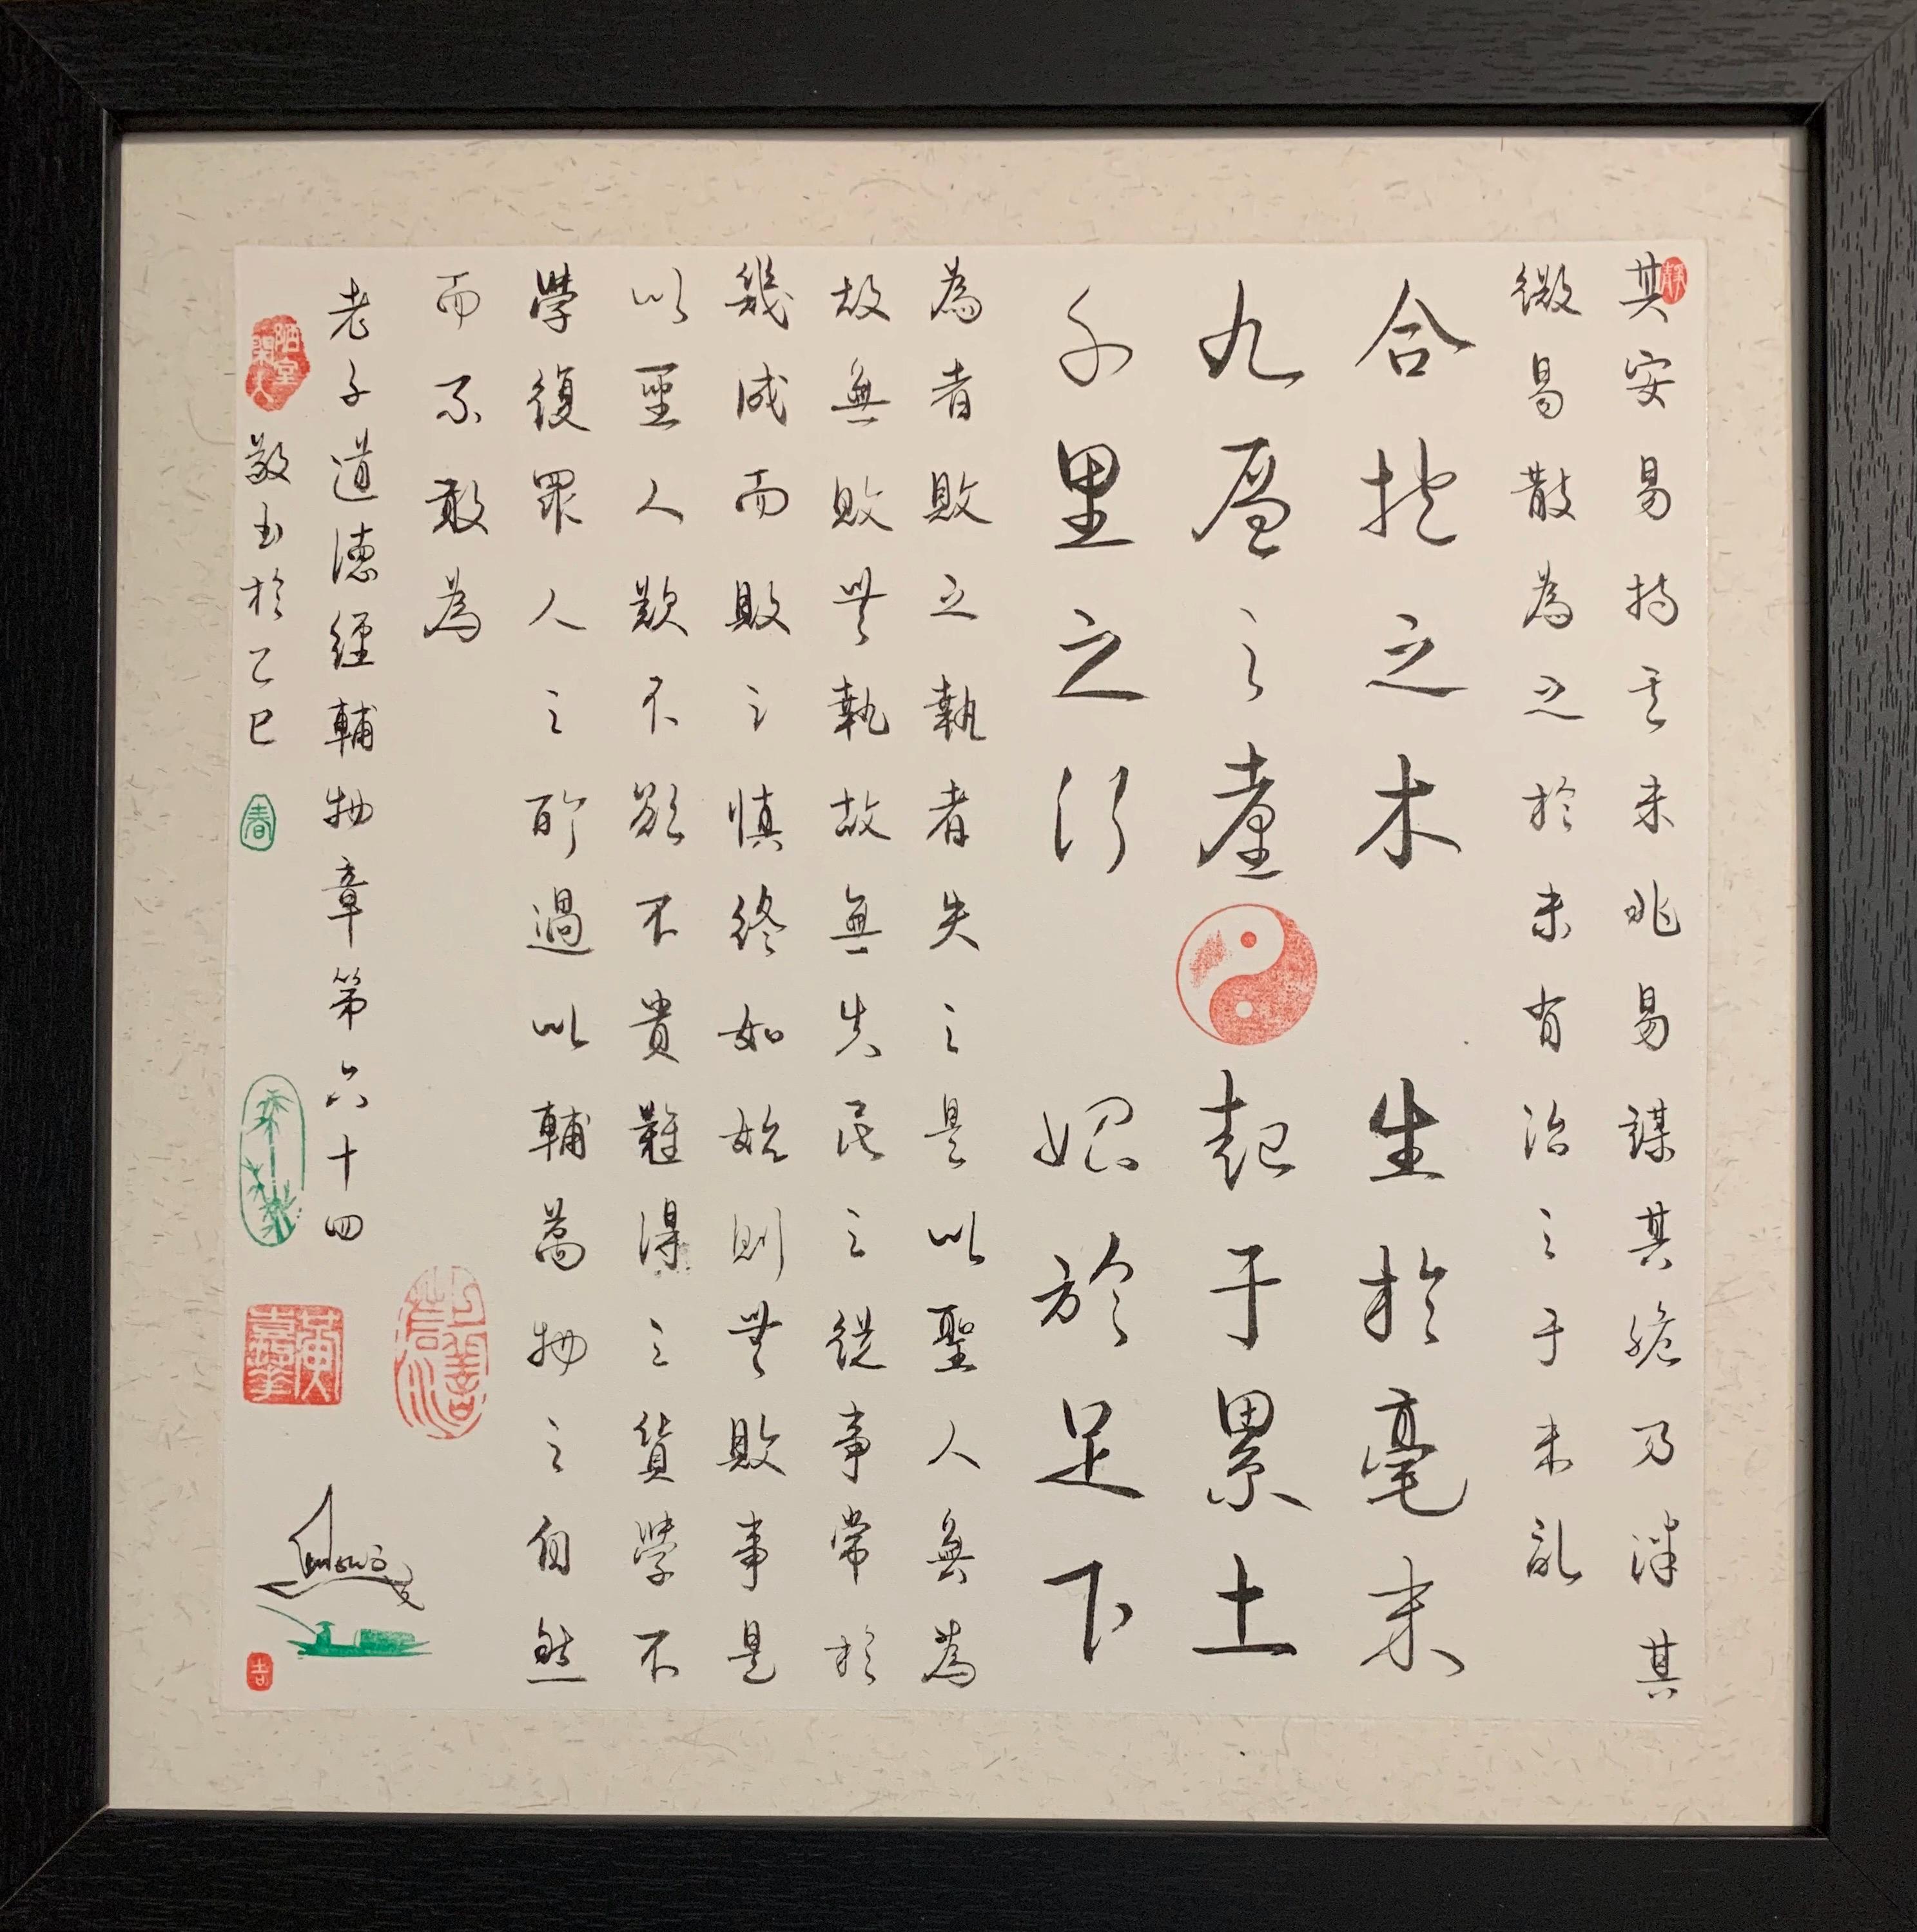 其安易持其未兆易謀其脆乃泮其
微易散為之於未有治之于未亂
合抱之木生於毫末
九層之臺起于累土
千里之行始於足下
為者敗之執者失之是以聖人無為
故無敗無執故無失民之從事常於
幾成而敗之慎終如始則無敗事是
以聖人欲不欲不貴難得之貨學不
學復眾人之所過以輔萬物之自然
而不敢為
老子道德經輔物章第六十四
敬書於乙巳春
上善若水
吉